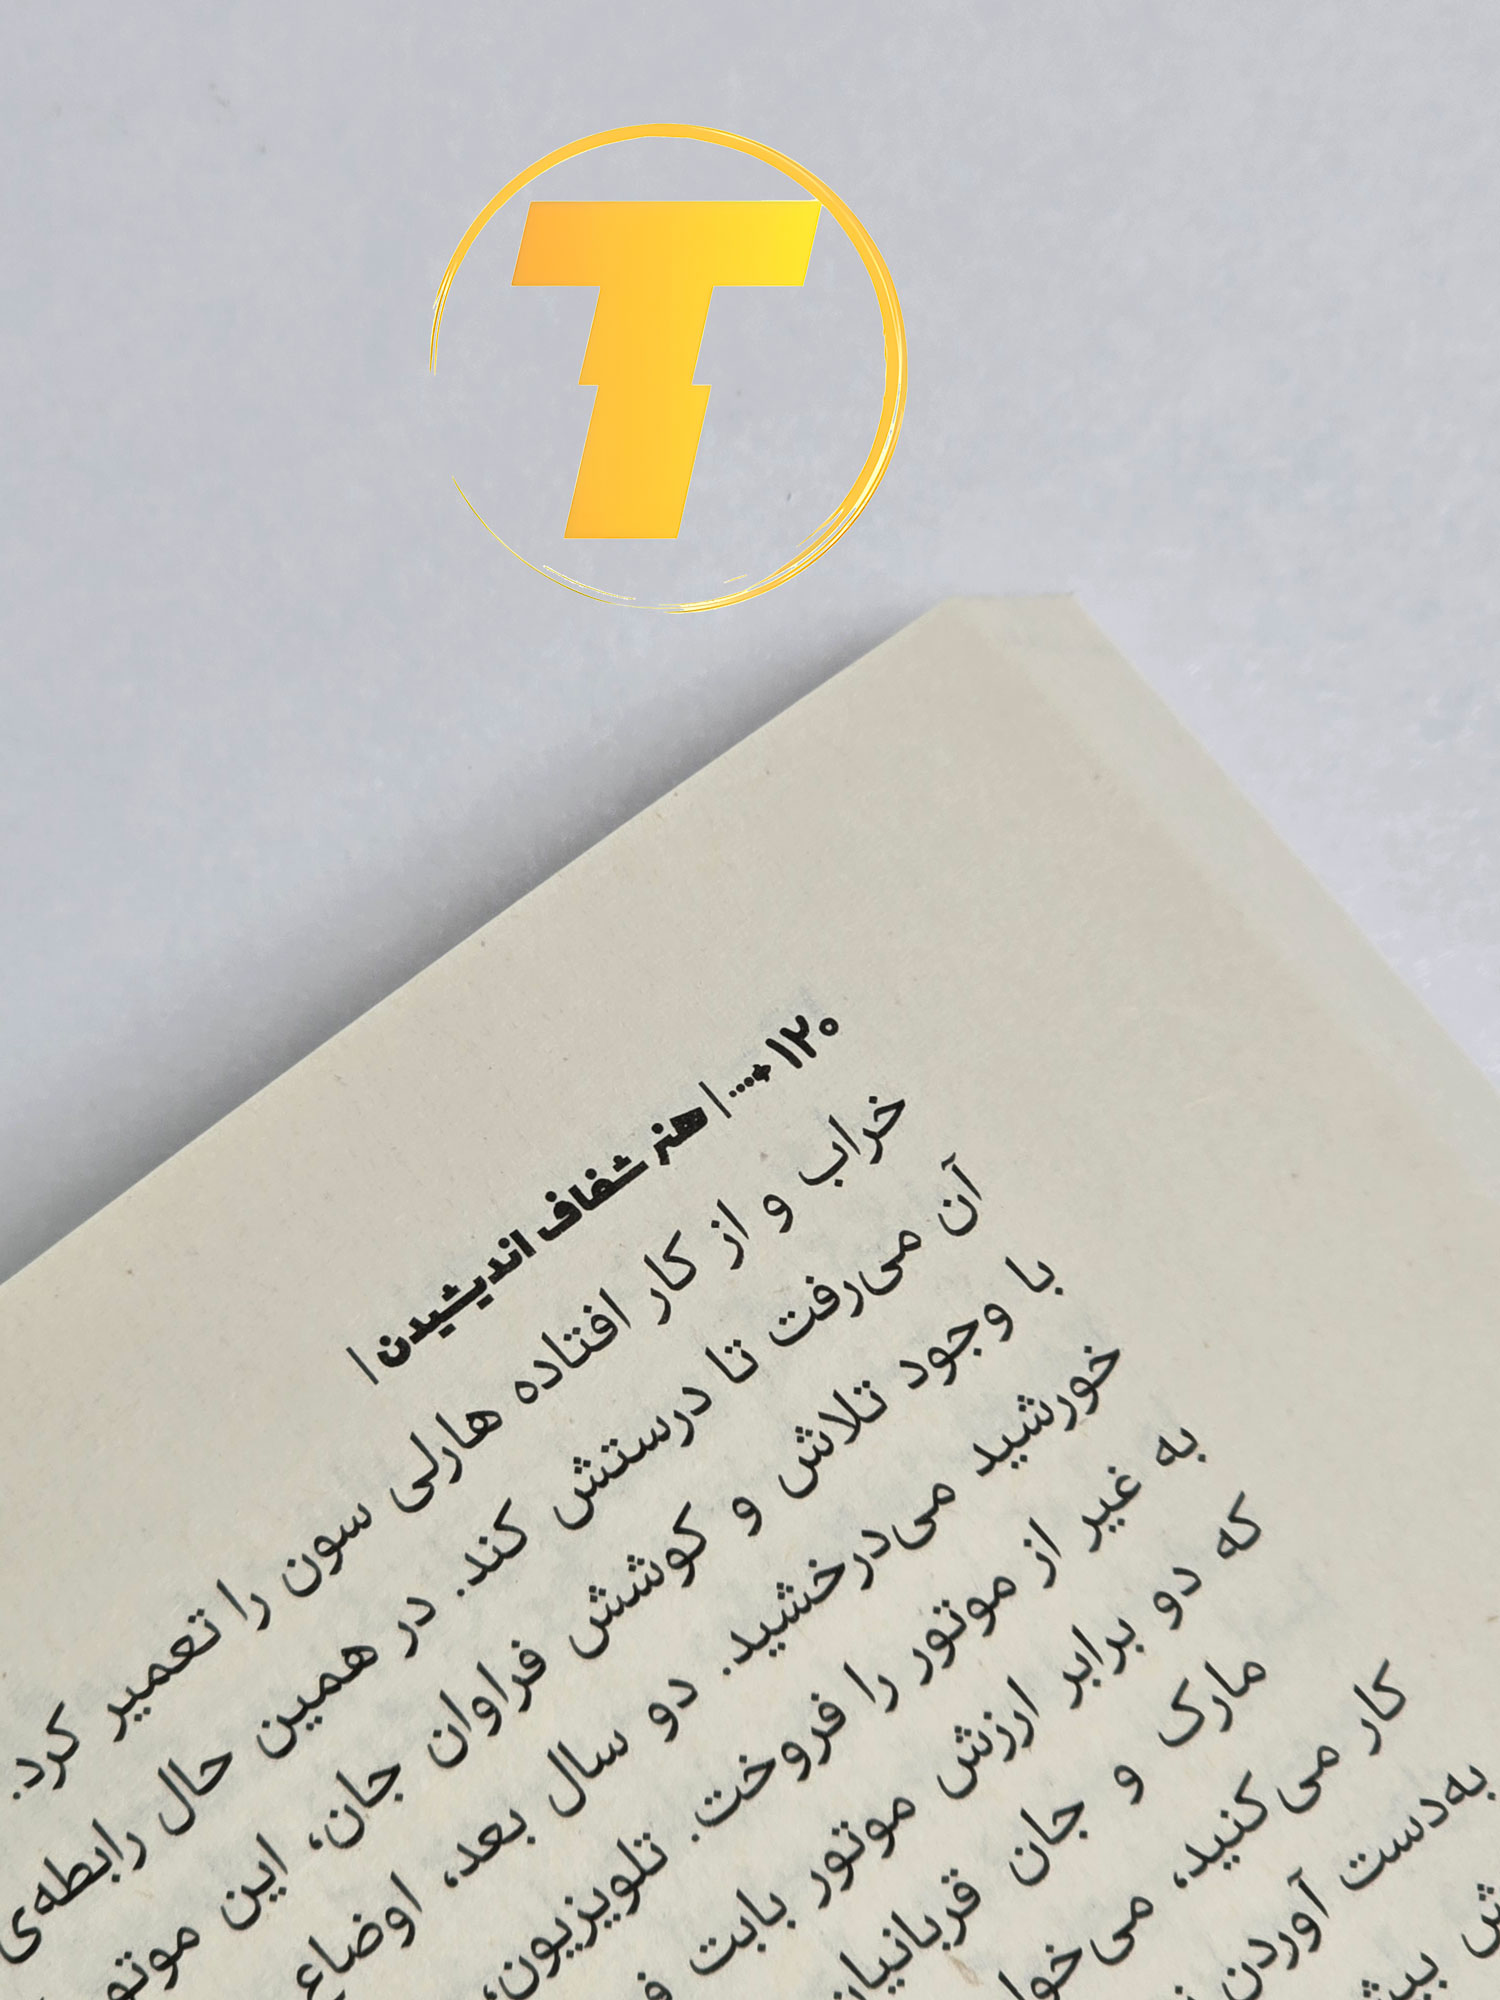 T
۱۲۰ ....| هنر شفاف اندیشیدن |
خراب و از کار افتاده هارلی سون را تعمیر کرد.
آن می‌رفت تا درستش کند. در همین حال رابطه‌ی
با وجود تلاش و کوشش فراوان جان، این
خورشید می‌درخشید. دو سال بعد، اوضاع
به غیر از موتور را فروخت. تلویزیون،
که دو برابر ارزش موتور بابت
مارک و جان قربانیان
کار می‌کنید،
به‌دست آوردن